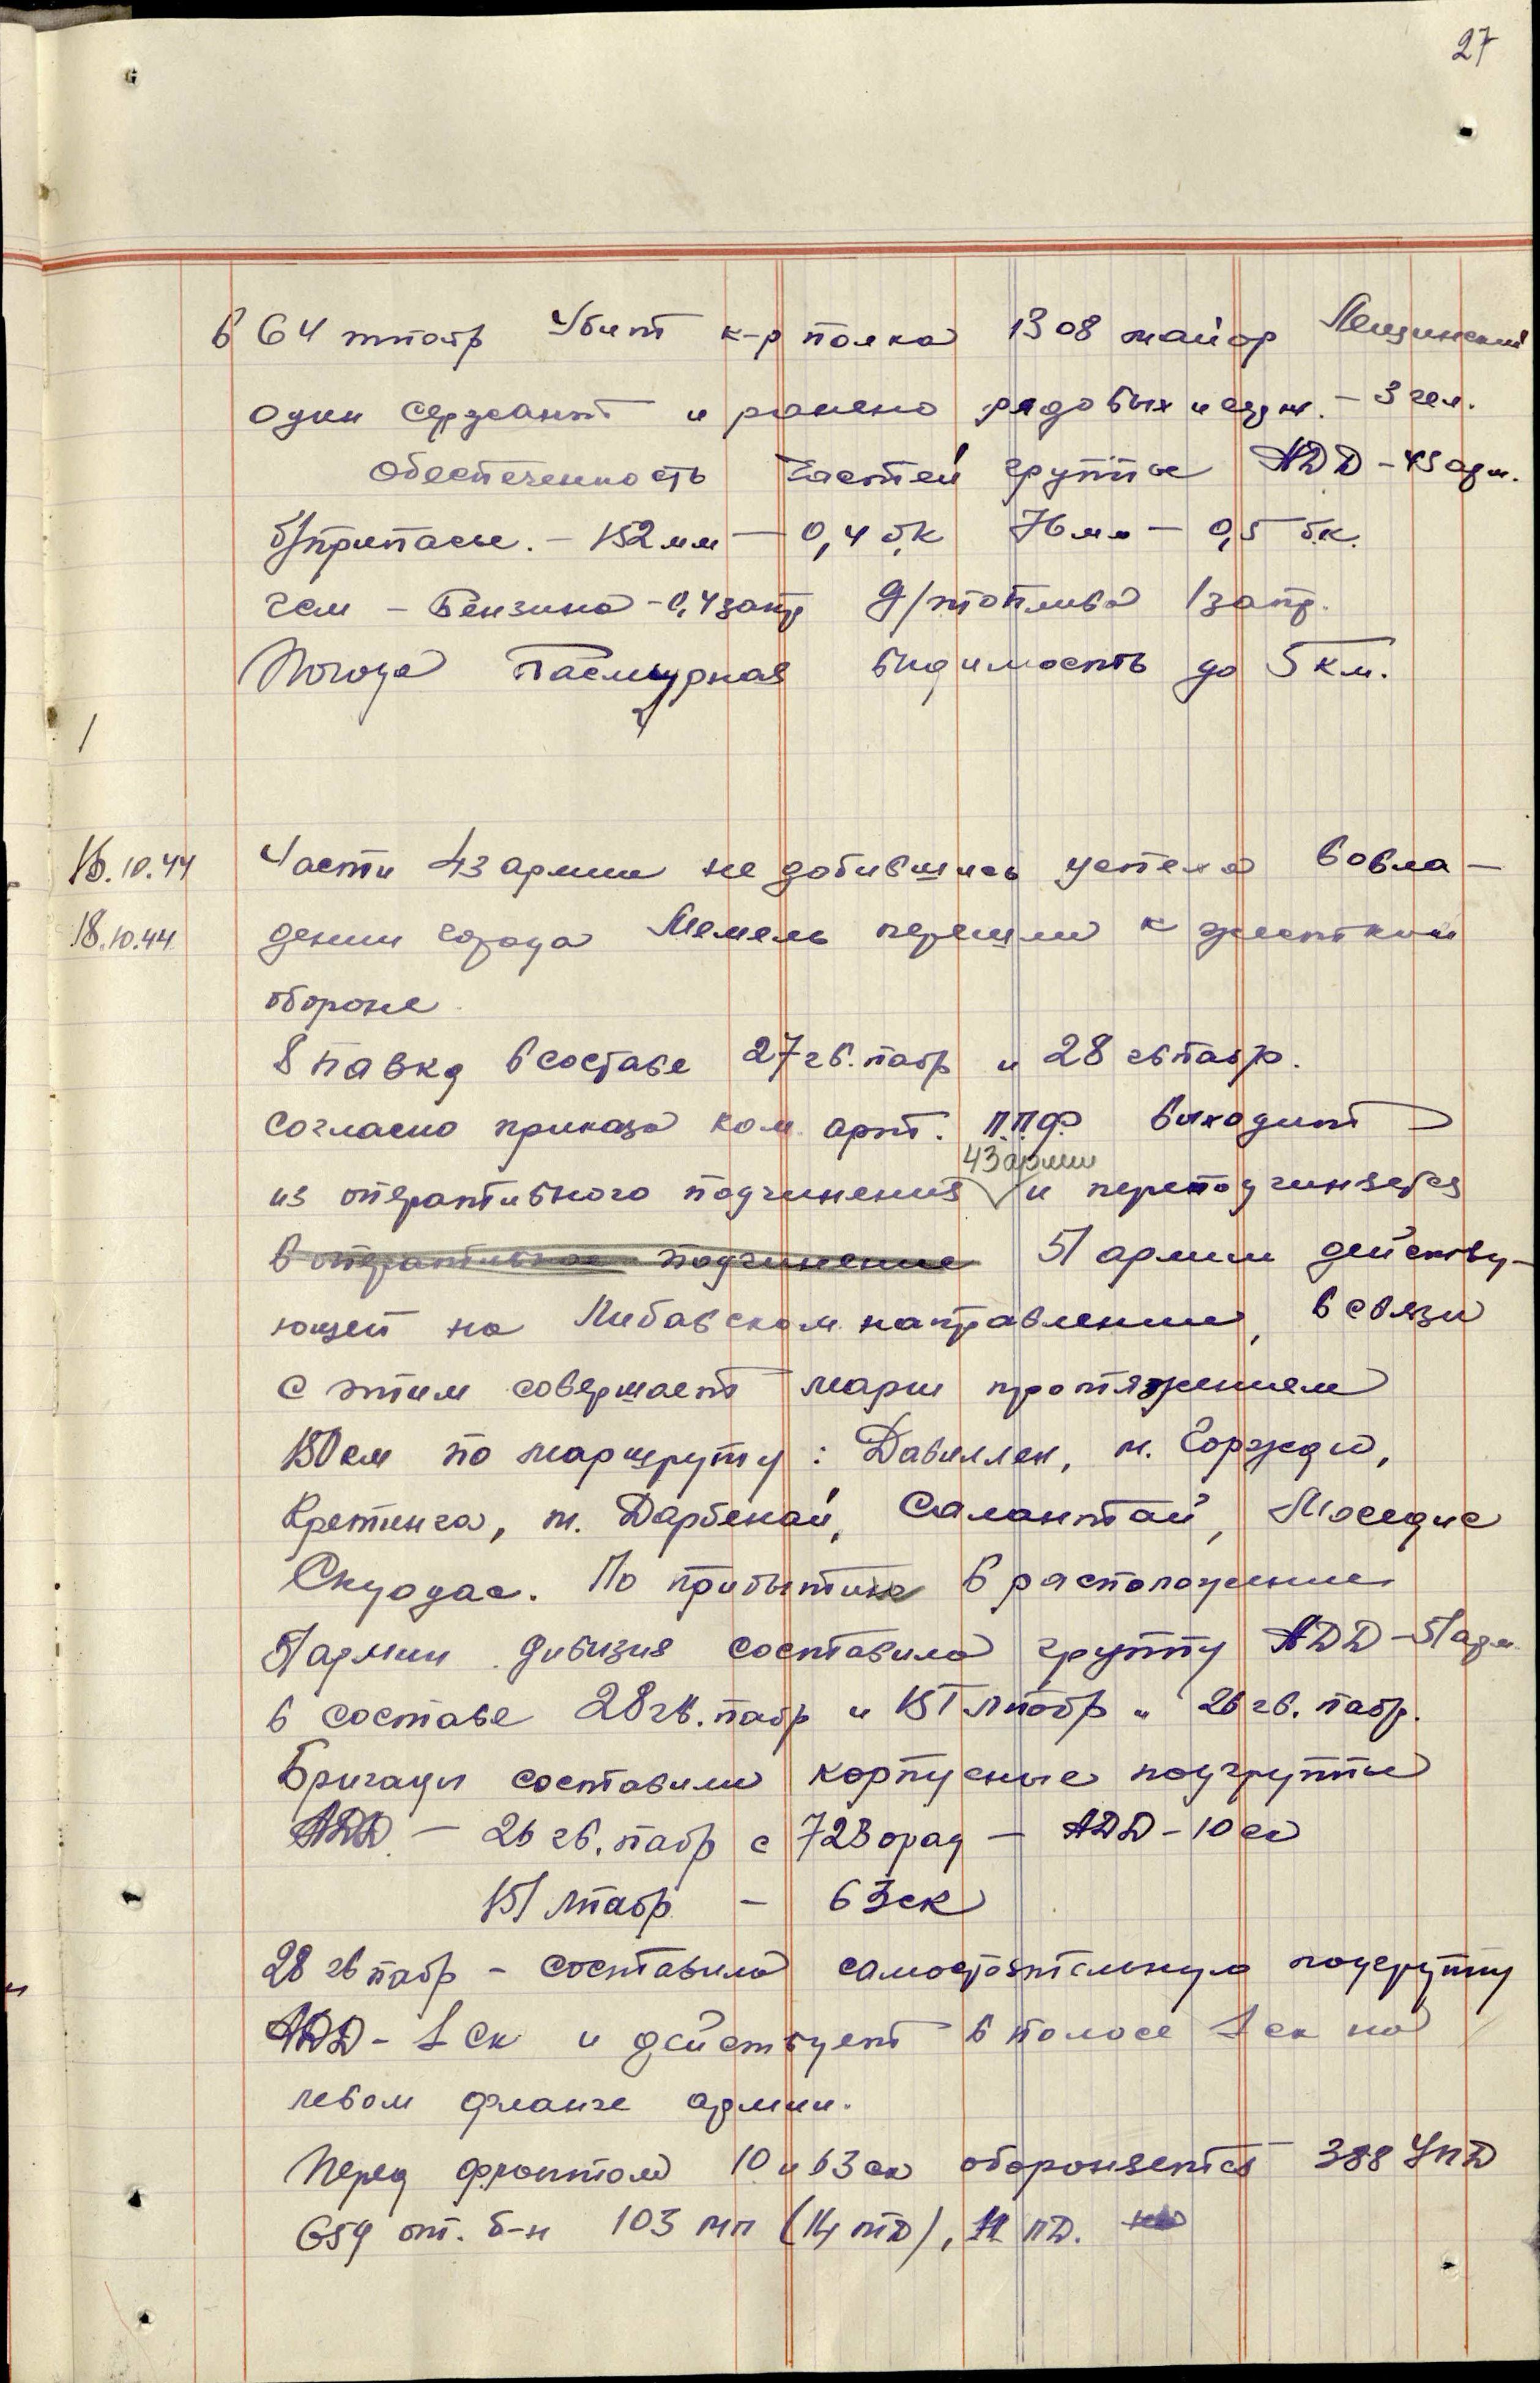 27
в 64 тпабр Убит к-р полка 1308 майор Лещинский
один сержант и ранено рядовых и серж. – 3 чел.
Обеспеченность частей группы АДД – 43 арм.
б/припасы. – 152 мм – 0,4 б.к 76 мм – 0,5 б.к.
гсм – Бензина – 0,4 запр д/топлива 1 запр.
Погода Пасмурная видимость до 5 км.
16.10.44 Части 43 армии не добившись успеха в овла–
18.10.44 дении города Мемель перешли к жесткой
обороне
8 павкд в составе 27 гв. пабр и 28 гв пабр.
Согласно приказа ком. арт. П.П.Ф. выходит
43 армии
из оперативного подчинения и переподчиняется
в оперативное подчинение 51 армии действу–
ющей на Либавском направлении, в связи
с этим совершает марш протяжением
150 км по маршруту: Давиллен, м. Горжди,
Кретинга, м. Дарбенай, Салантай, Моседис
Скуодас. По прибытии в расположение
51 армии дивизия составила группу АДД – 51 арм.
в составе 28 гв. пабр и 151 лпабр и 26 гв. пабр.
Бригады составили корпусные подгруппы
АДД – 26 гв. пабр с 723 орад – АДД – 10 ск
151 лпабр – 63 ск
28 гв пабр – составила самостоятельную подгруппу
АДД – 1 ск и действует в полосе 1 ск на
левом фланге армии.
Перед фронтом 10 и 63 ск обороняется 388 УПД
659 от. б-н 103 мп (14 тд), 11 пд.